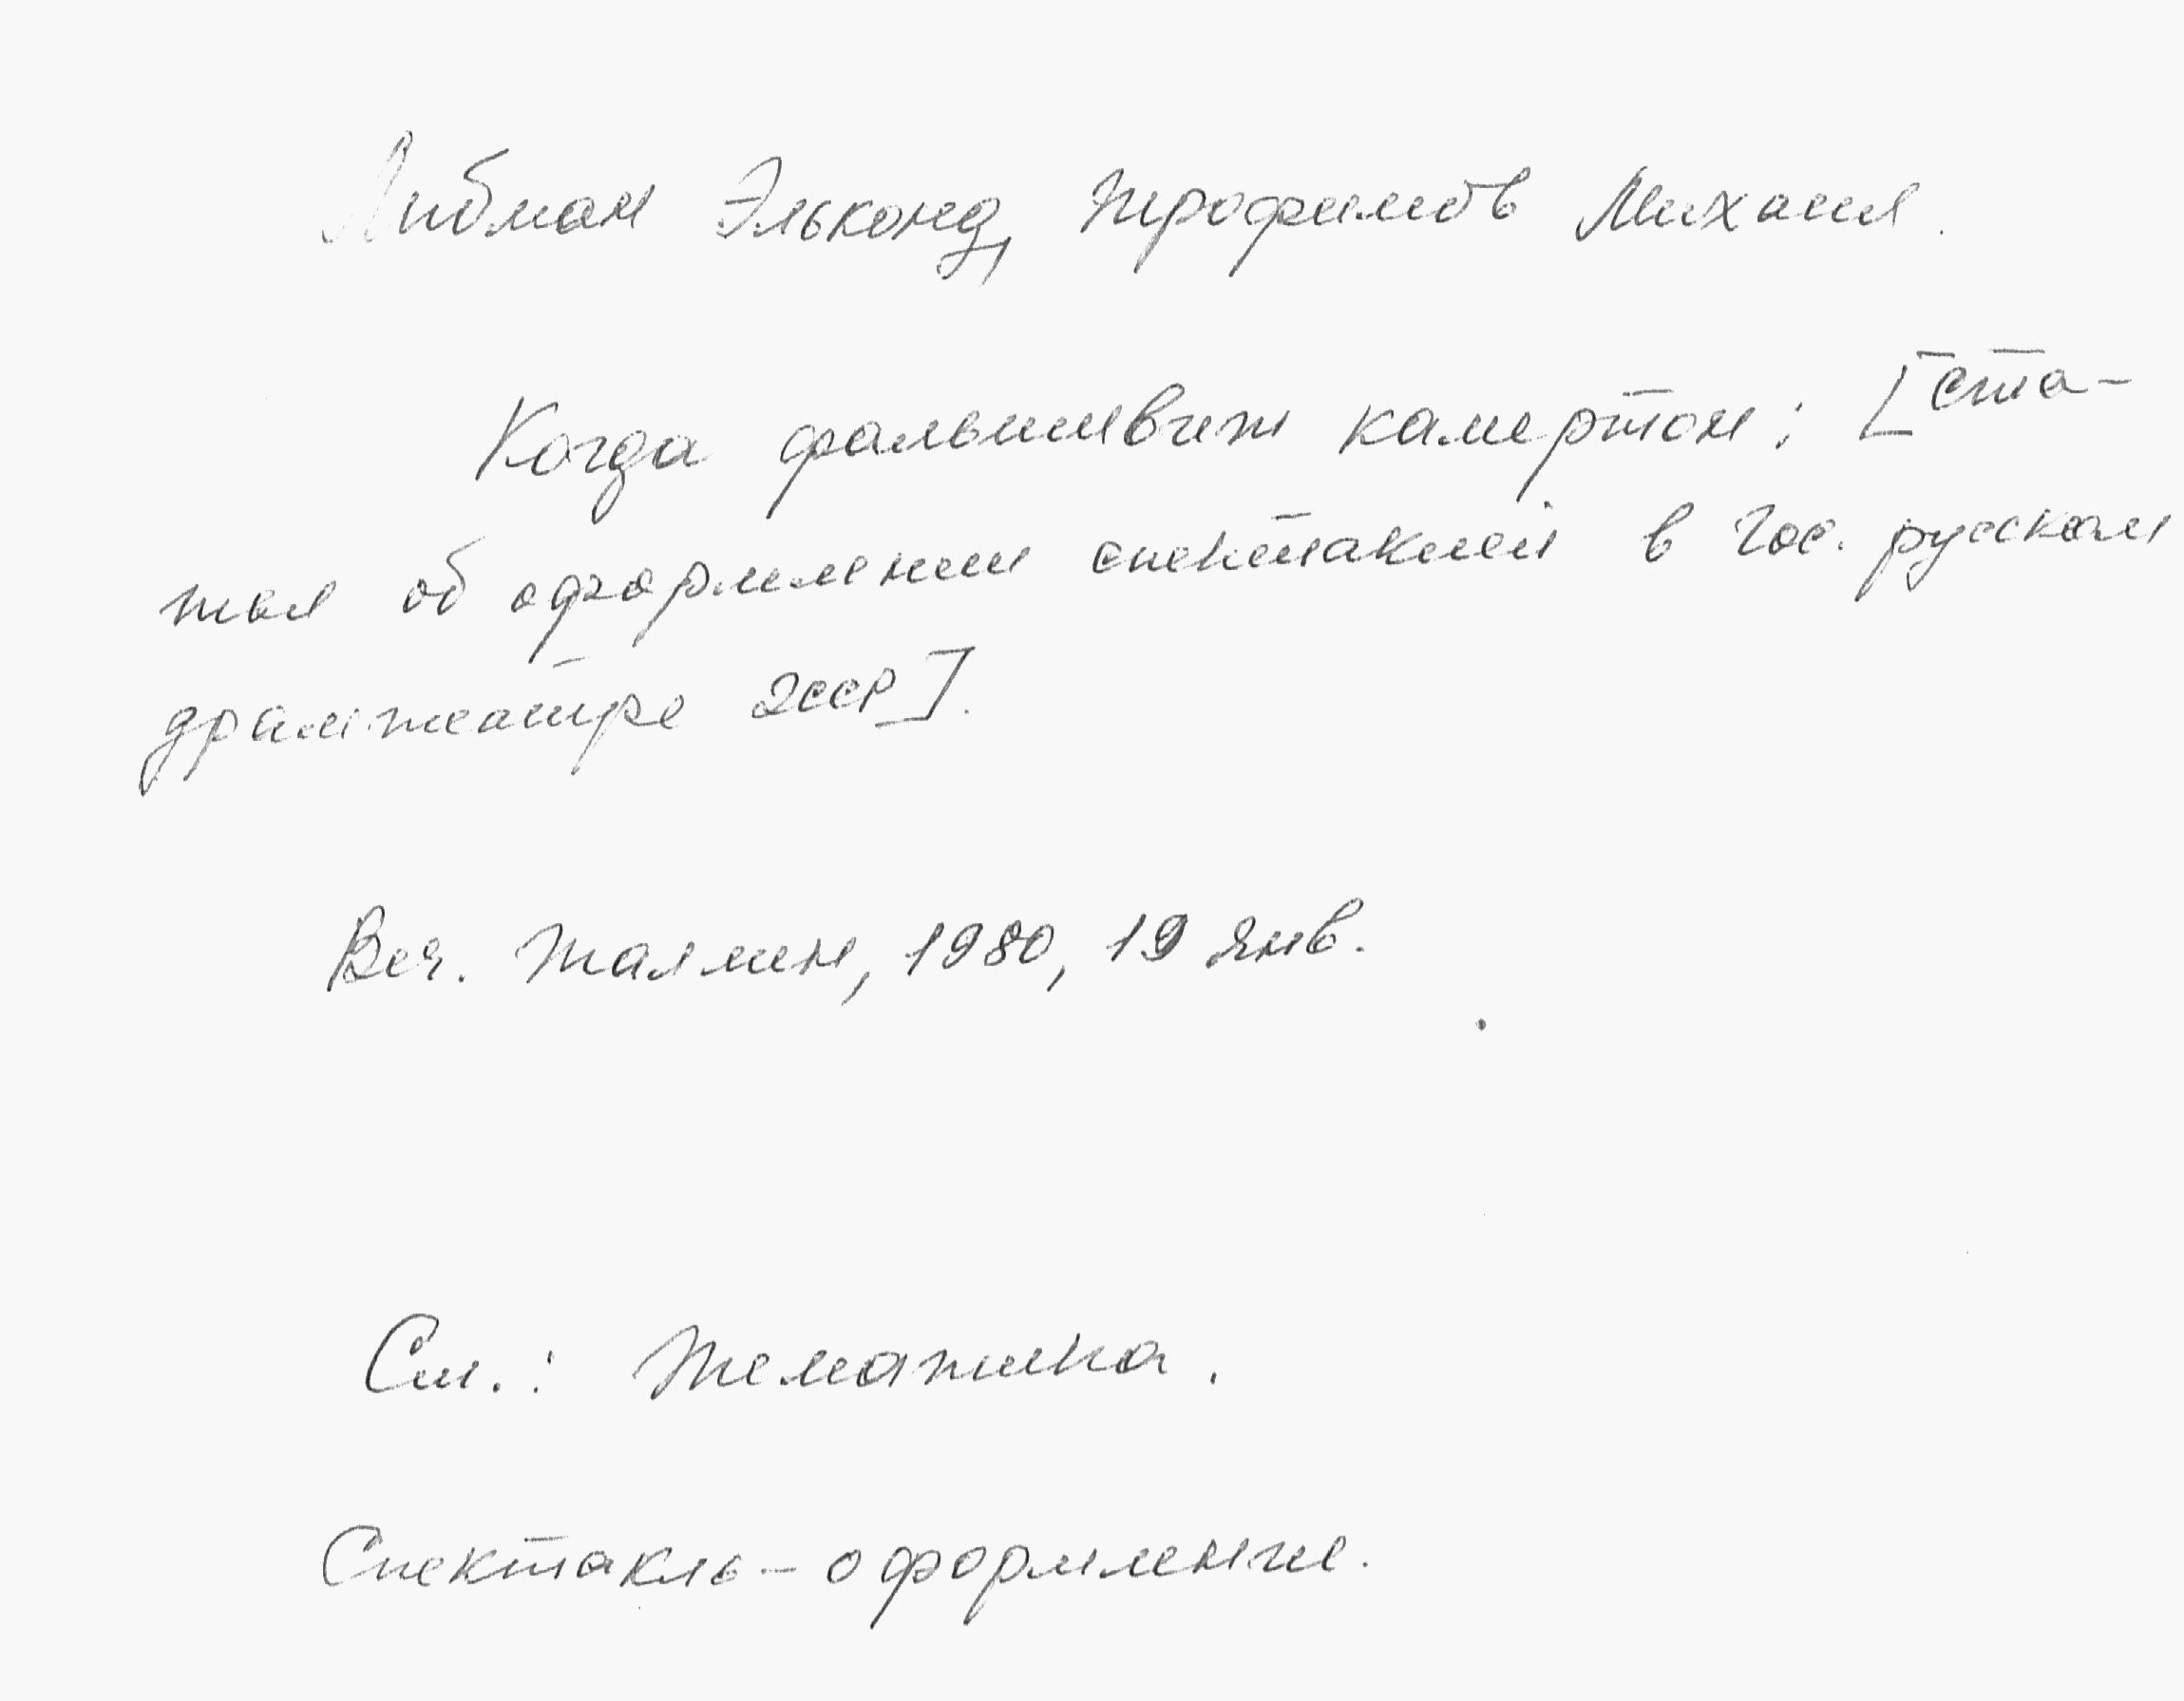 Либман Эльконд, Трофимов Михаил.
Когда фальшивит камертон: [Ста-
тья об оформлении спектаклей в Гос. русском
драмтеатре ЭССР].
Веч. Таллин, 1980, 19 янв.
См.: Тематика.
Спектакль-оформление.